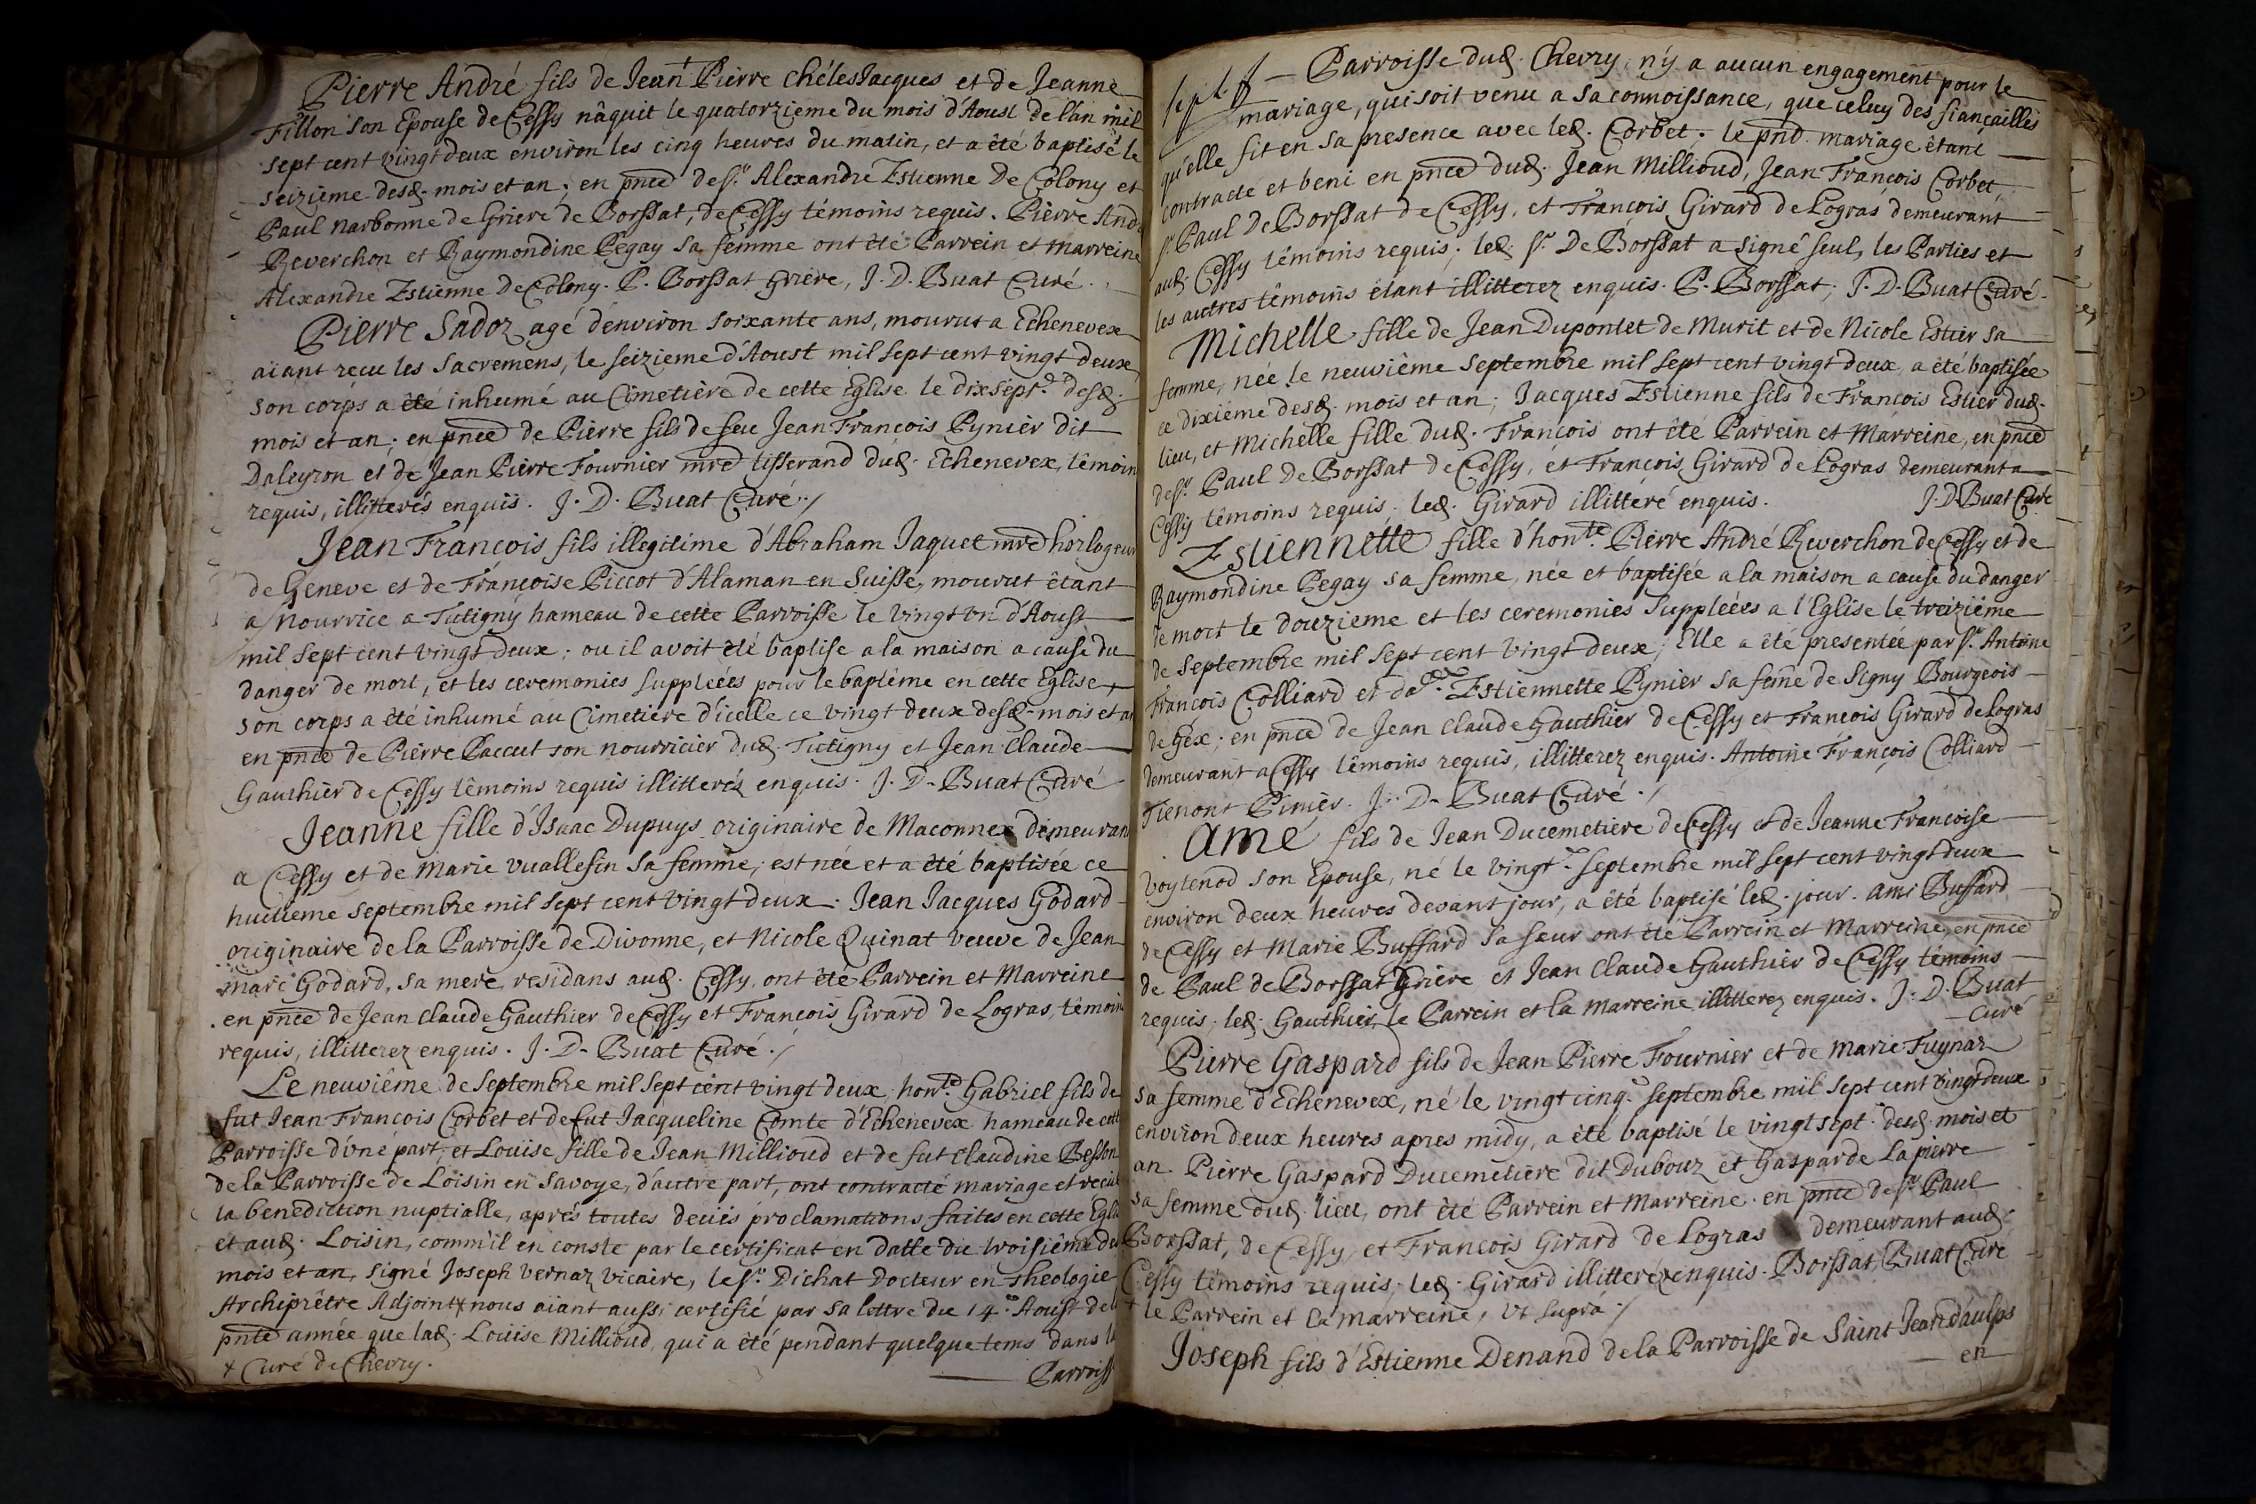 Pierre André fils de Jean Pierre Chéles Jacques et de Jeanne
Fillon son Epouse de Cessy nâquit le quatorzieme du mois d'Aoust de l'an mil
sept cent vingt deux environ les cinq heures du matin, et a été baptisé le
seizieme desd. mois et an; en pnce de Sr. Alexandre Estienne De Colony et
Paul Narbonne de Grieré de Borssat, de Cessy témoins requis. Pierre André
Reverchon et Raymondine Pegay sa femme ont été Parrein et Marreine
Alexandre Estienne De Colony. P. Borssat Grière, J. D. Buat Curé.
Pierre Sadoz agé d'environ soixante ans, mourut a Echenevex
aiant recu les sacremens, le seizieme d'Aoust mil sept cent vingt deux
son corps a été inhumé au Cimetière de cette Eglise le dixsept.e desd.
mois et an; en pnce de Pierre fils de feu Jean François Pynier dit
Daleyzon et de Jean Pierre Fournier mre tisserand dud. Echenevex, têmoins
requis, illitterés enquis. J. D. Buat Curé./
Jean François fils illegitime d'Abraham Jaquet mre horlogeur
de Geneve et de Françoise Piccot d'Alaman en Suisse, mourut êtant
a Nourrice a Tutigny hameau de cette Parroisse le vingt un d'Aoust
mil sept cent vingt deux; ou il avoit été baptise a la maison a cause du
danger de mort, et les ceremonies suppleées pour le baptême en cette Eglise,
son corps a été inhumé au Cimetiere d'icelle ce vingt deux desd. mois et an
en pnce de Pierre Paccut son nourricier dud. Tutigny et Jean Claude
Gauthier de Cessy têmoins requis illitterés enquis. J. D. Buat Curé
Jeanne fille d'Isaac Dupuys originaire de Maconnex demeurant
a Cessy et de Marie Vuallesin sa femme, est née et a été baptisée ce
huitieme septembre mil sept cent vingt deux. Jean Jacques Godard
originaire de la Parroisse de Divonne, et Nicole Quinat veuve de Jean
Marc Godard, sa mere, residans aud. Cessy, ont été Parrein et Marreine
en pnce de Jean Claude Gauthier de Cessy et François Girard de Logras, têmoins
requis, illitterez enquis. J. D. Buat Curé./
Le neuviême de Septembre mil sept cent vingt deux, honte. Gabriel fils de
fut Jean François Corbet et de fut Jacqueline Comte d'Echenevex hameau de cette
Parroisse d'une part, et Louise fille de Jean Millioud et de fut Claudine Besson
de la Parroisse de Loisin en Savoye, d'autre part, ont contracté mariage et recu
la benediction nuptialle, aprés toutes deües proclamations faites en cette Eglise
et aud. Loisin, comm'il en conste par le certificat en datte du troisiême du
mois et an, signé Joseph Vernaz vicaire, le Sr. Dichat Docteur en Theologie
Archiprêtre Adjoint + nous aiant aussi certifié par sa lettre du 14.e Aoust de la
pnte année que lad. Loüise Millioud, qui a été pendant quelque tems dans la
+ Curé de Chevry.
Parroiss
Parroisse dud. Chevry n'y a aucun engagement pour le
mariage, qui soit venu a sa connoissance, que celuy des fiançailles
qu'elle fit en sa presence avec led. Corbet; le pnd. mariage êtant
contracté et beni en pnce dud. Jean Millioud, Jean François Corbet,
Sr. Paul De Borssat de Cessy, et François Girard de Logras demeurant
aud. Cessy têmoins requis; led. Sr. De Borssat a signé seul, les Parties et
les autres têmoins êtant illitterez enquis. P. Borssat, J. D. Buat Curé.
Michelle fille de Jean Dupontet de Murit et de Nicole Estier sa
femme, née le neuviême septembre mil sept cent vingt deux, a été baptisée
ce dixiême desd. mois et an; Jacques Estienne fils de François Estier dud.
lieu, et Michelle fille dud. François ont été Parrein et Marreine, en pnce
de Sr. Paul De Borssat de Cessy, et François Girard de Logras demeurant a
Cessy têmoins requis, led. Girard illittéré enquis. J. D. Buat Curé
Estiennette fille d'honte. Pierre André Reverchon de Cessy et de
Raymondine Pegay sa femme, née et baptisée a la maison a cause du danger
de mort le douzieme et les ceremonies suppleées a l'Eglise le treiziême
de septembre mil sept cent vingt deux; Elle a été presentée par Sr. Antoine
François Colliard et de Estiennette Pynier sa feme de Signy Bourgeois
de Géx; en pnce de Jean Claude Gauthier de Cessy et François Girard de Logras
demeurant a Cessy têmoins requis, illitterez enquis. Antoine François Colliard
Tienont Pinier. J. D. Buat Curé./
Amé fils de Jean Ducemetiere de Cessy et de Jeanne Françoise
Voytenod son Epouse, né le vingt.e septembre mil sept cent vingt deux
environ deux heures devant jour, a été baptisé led. jour. Ami Buffard
de Cessy et Marie Buffard sa sœur ont été Parrein et Marreine, en pnce
de Paul de Borssat Grière et Jean Claude Gauthier de Cessy témoins
requis, led. Gauthier, le Parrein et la Marreine illitterez enquis. J. D. Buat
Curé
Pierre Gaspard fils de Jean Pierre Fournier et de Marie Fuynaz
sa femme d'Echenevex, né le vingt cinq.e septembre mil sept cent vingt deux
environ deux heures apres midy, a été baptisé le vingt sept.e desd. mois et
an. Pierre Gaspard Ducemetiere dit Dubouz et Gasparde Lapierre
sa femme dud. lieu, ont été Parrein et Marreine. en pnce de Sr. Paul
Borssat, de Cessy, et François Girard de Logras demeurant aud.
Cessy témoins requis, led. Girard illitteré enquis. Borssat, Buat Curé
+ le Parrein et la marreine, ut supra./
Joseph fils d'Estienne Denand de la Parroisse de Saint Jean d'aulps
en